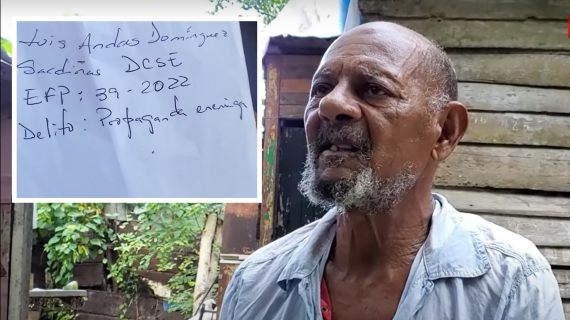 Luis Andres Domínguez
Sardiñas DCSE
EFP: 39-2022
Delito: Propaganda enemiga